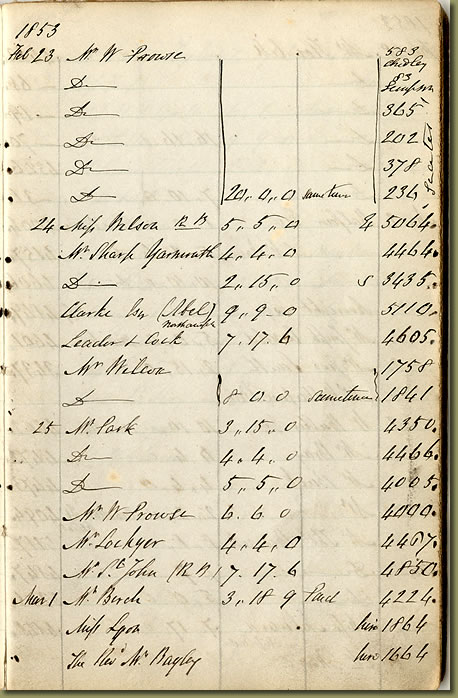 1853
Feb 23 Mr W Prowse 583
Chidley
Do 83
Simpson
Do 365
Do 202
Do 378
Do 20,, 0,, 0 sometime 236
24 Miss Wilson R B 5,, 5,, 0 4 5064.
Mr Sharp Yarmouth 4,, 4,, 0 4464.
Do 2,, 15,, 0 s 3435.
Clarke Esq (Abel) 9,, 9- 0 5110.
Northampton
Leader & Cock 7. 17. 6 4605.
Mr Wilson 1758
Do 8 0.. 0 sometime 1841
25 Mr Park 3,, 15,, 0 4350.
Do 4,, 4,, 0 4466.
Do 5,, 5,, 0 4005.
Mr W Prowse 6. 6 0 4090.
Mr Lockyer 4,, 4,, 0 4467.
Mr St John (R A) 7. 17. 6 4850.
Mar 1 Mr Birch 3,, 18 9 Paid 4224.
Miss Lyon hire 1864
The Revd Mr Bagley hire 1664